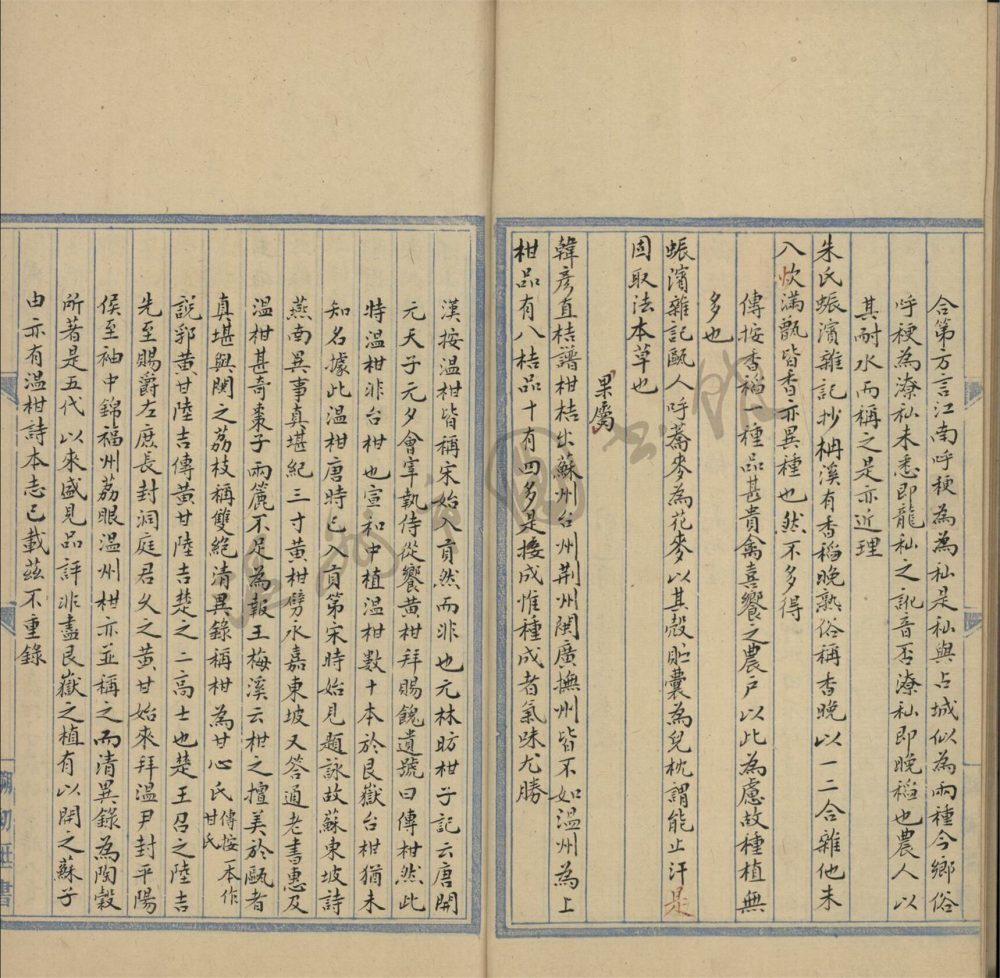 合第方言江南呼粳為為秈是秈與占城似為兩種今鄉俗
呼粳為潦秈未悉即龍秈之訛音否潦秈即晚稻也農人以
其耐水而稱之是亦近理
朱氏蜄濱雜記抄枬溪有香稻晚熟俗稱香晚以一二合雜他未
入炊滿甑皆香亦異種也然不多得
傳按香稻一種品甚貴禽喜饗之農戶以此為慮故種植無
多也
蜄濱雜記甌人呼蕎麥為花麥以其殼貯囊為兒枕謂能止汗是
固取法本草也
果屬
韓彥直桔譜柑桔出蘇州台州荆州閩廣撫州皆不如温州為上
柑品有八桔品十有四多是接成惟種成者氣味尤勝
漢按温柑皆稱宋始入貢然而非也元林昉柑子記云唐開
元天子元夕會宰執侍從饗黄柑拜賜餽遺號曰傳柑然此
特温柑非台柑也宣和中植温柑數十本於艮嶽台柑猶未
知名據此温柑唐時已入貢第宋時始見題詠故蘇東坡詩
燕南異事真堪紀三寸黄柑劈永嘉東坡又答通老書惠及
温柑甚奇棗子兩簏不足為報王梅溪云柑之擅美於甌者
真堪與閩之荔枝稱雙絕清異錄稱柑為甘心氏傳按一本作甘氏
說郛黄甘陸吉傳黄甘陸吉楚之二高士也楚王召之陸吉
先至賜爵左庶長封洞庭君久之黄甘始來拜温尹封平陽
侯至袖中錦福州荔眼温州柑亦並稱之而清異錄為陶穀
所著是五代以來盛見品評非盡艮嶽之植有以開之蘇子
由亦有温柑詩本志已載茲不重錄